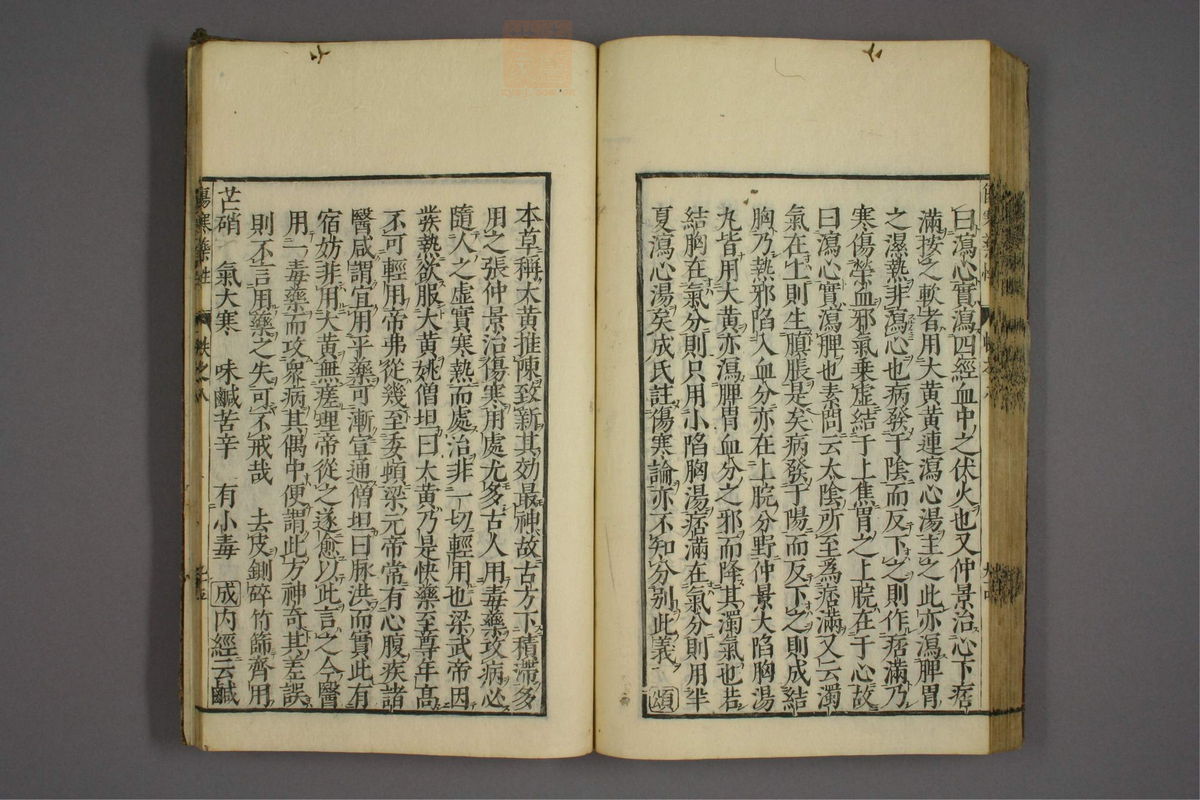 曰瀉心實瀉四經血中之伏火也又仲景治心下痞
滿按之軟者用大黃黃連瀉心湯主之此亦瀉脾胃
之濕熱非瀉心也病發于陰而反下之則作痞滿乃
寒傷榮血邪氣乘虛結于上焦胃之上脘在于心故
曰瀉心實瀉脾也素問云太陰所至爲痞滿又云濁
氣在上則生䐜脹是矣病發于陽而反下之則成結
胸乃熱邪陷入血分亦在上脘分野仲景大陷胸湯
丸皆用大黃亦瀉脾胃血分之邪而降其濁氣也若
結胸在氣分則只用小陷胸湯痞滿在氣分則用半
夏瀉心湯矣成氏註傷寒論亦不知分別此義 頌
本草稱大黃推陳致新其効最神故古方下積滯多
用之張仲景治傷寒用處尤多古人用毒藥攻病必
隨人之虛實寒熱而處治非一切輕用也梁武帝因
發熱欲服大黃姚僧坦曰大黃乃是快藥至尊年高
不可輕用帝弗從幾至委頓梁元帝常有心腹疾諸
醫咸謂宜用平藥可漸宣通僧坦曰脉洪而實此有
宿妨非用大黃無瘥理帝從之遂愈以此言之今醫
用一毒藥而攻衆病其偶中便謂此方神奇其差誤
則不言用藥之失可不戒哉 去皮剉碎竹篩齊用
芒硝 氣大寒 味鹹苦辛 有小毒 成 内經云鹹
傷寒藥性 帙之八